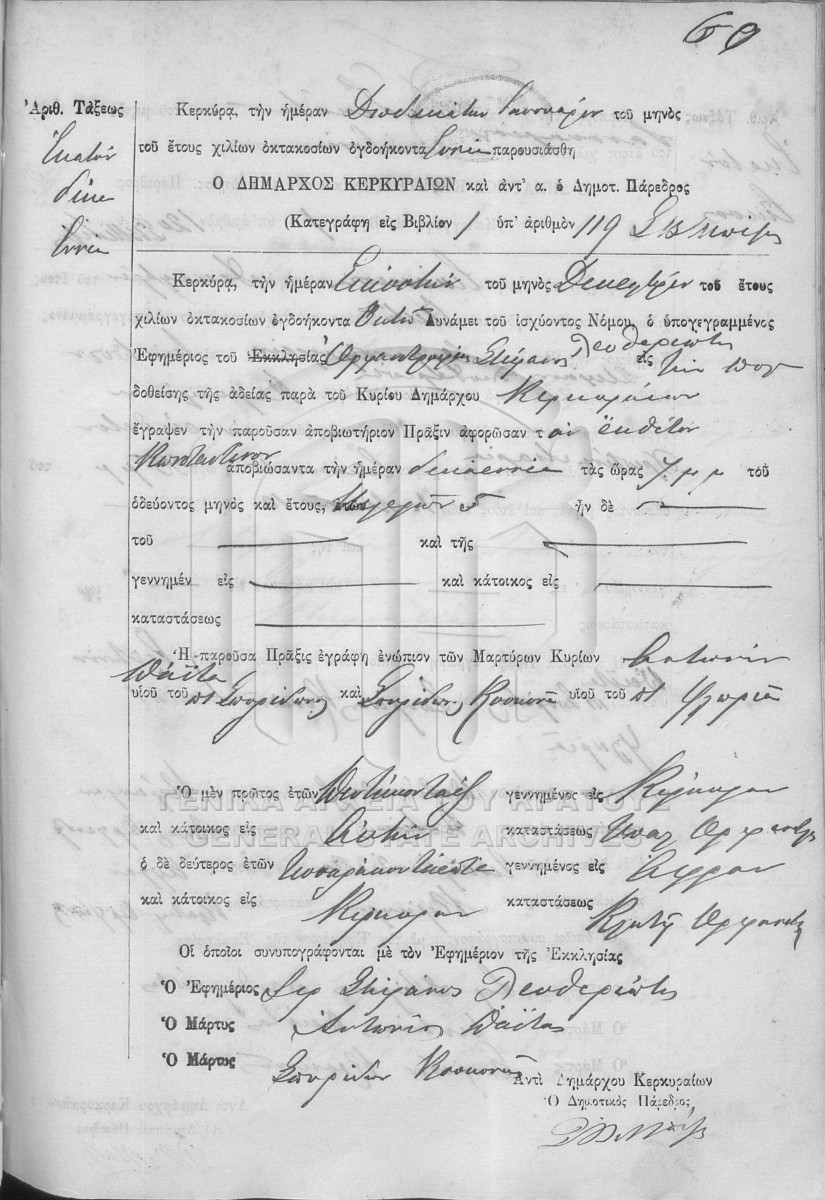 60
Ἀριθ. Τάξεως
Ἑκατὸν
δέκα
ἐννέα
Κερκύρα, τὴν ἡμέραν Δωδεκάτην Ἰανουαρίου τοῦ μηνὸς
τοῦ ἔτους χιλίων ὀκτακοσίων ὀγδοήκοντα ἐννέα παρουσιάσθη
Ο ΔΗΜΑΡΧΟΣ ΚΕΡΚΥΡΑΙΩΝ καὶ ἀντ' α. ὁ Δημοτ. Πάρεδρος
(Κατεγράφη εἰς Βιβλίον 1 ὑπ' ἀριθμὸν 119
Κερκύρα, τὴν ἡμέραν Εἰκοστὴν τοῦ μηνὸς Δεκεμβρίου τοῦ ἔτους
χιλίων ὀκτακοσίων ὀγδοήκοντα Ὀκτὼ Δυνάμει τοῦ ἰσχύοντος Νόμου, ὁ ὑπογεγραμμένος
Ἐφημέριος τοῦ Ἐκκλησίας Ὀρφανοτροφείου Στέφανος Λευθεριώτης εἰς τὴν ὑπο
δοθείσης τῆς ἀδείας παρὰ τοῦ Κυρίου Δημάρχου Κερκυραίων
ἔγραψεν τὴν παροῦσαν ἀποβιωτήριον Πρᾶξιν ἀφορῶσαν τὸν ἔκθετον
Κωνσταντῖνον
ἀποβιώσαντα τὴν ἡμέραν δεκαεννέα τὰς ὥρας 7 μ μ τοῦ
ὁδεύοντος μηνὸς καὶ ἔτους, ἐτῶν ἡμερῶν 5 ἦν δὲ
τοῦ καὶ τῆς
γεννημέν εἰς καὶ κάτοικος εἰς
καταστάσεως
Ἡ παροῦσα Πρᾶξις ἐγράφη ἐνώπιον τῶν Μαρτύρων Κυρίων Ἀντωνίου
Βάϊτα
υἱοῦ τοῦ πτ Σπυρίδωνος καὶ Σπυρίδωνος Κοσκονᾶ υἱοῦ τοῦ πτ Φλωριᾶ
Ὁ μὲν πρῶτος ἐτῶν Πεντήκοντα ἕξ γεννημένος εἰς Κέρκυραν
καὶ κάτοικος εἰς Αὐτὴν καταστάσεως Ὑπαλ Ὀρφανοτρ
ὁ δὲ δεύτερος ἐτῶν Τεσσαράκοντα γεννημένος εἰς
καὶ κάτοικος εἰς Κέρκυραν καταστάσεως Κλητὴρ Ὀρφανοτρ
Οἱ ὁποῖοι συνυπογράφονται μὲ τὸν Ἐφημέριον τῆς Ἐκκλησίας
Ὁ Ἐφημέριος Ἱερ Στέφανος Λευθεριώτης
Ὁ Μάρτυς Ἀντώνιος Βάϊτας
Ὁ Μάρτυς Σπυρίδων Κοσκονᾶς
Ἀντὶ Δημάρχου Κερκυραίων
Ὁ Δημοτικὸς Πάρεδρος
ΓΕΝΙΚΑ ΑΡΧΕΙΑ ΤΟΥ ΚΡΑΤΟΥΣ
GENERAL STATE ARCHIVES